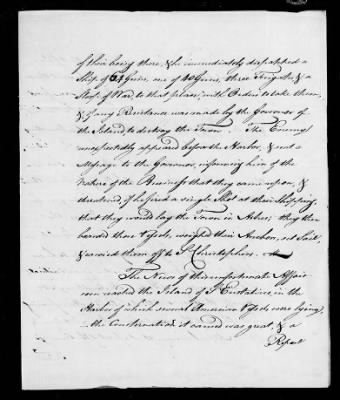 of their being there, & he immediately dispatched a
Ship of 64 Guns, one of 40 Guns, three Frigates & a
Sloop of War to that place, with Orders to take them,
& if any Resistance was made by the Governor of
the Island to destroy the Town. The Enemy
unexpectedly appeared before the Harbor, & sent a
Message to the Governor, informing him of the
Nature of the Business that they came upon, &
threatened, if he fired a single Shot at their Shipping,
that they would lay the Town in Ashes; they then
boarded those Vessels, weighed their Anchors, set Sail,
& carried them off to St. Christophers.
The News of this unfortunate Affair
soon reached the Island of St Eustatius, in the
Harbor of which several American Vessels were lying,
the Consternation it caused was great, & a
Report